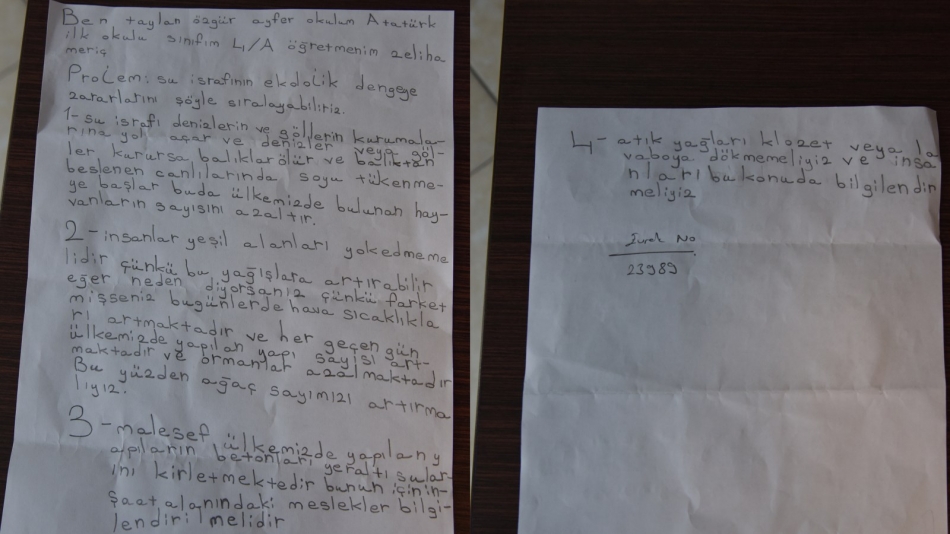 Ben taylan özgür ayfer okulum Atatürk
ilk okulu sınıfım 4/A öğretmenim zeliha
meriç
Prolem: su israfının ekdolik dengeye
zararlarını şöyle sıralayabiliriz.
1- su israfı denizlerin ve göllerin kurumala-
rına yol açar ve denizler veya göl-
ler kurursa balıklar ölür ve balıktan
beslenen canlılarında soyu tükenme-
ye başlar buda ülkemizde bulunan hay-
vanların sayısını azaltır.
2- insanlar yeşil alanları yokedmeme
lidir çünkü bu yağışlara artırabilir
eğer neden diyorsanız çünkü farket
mişseniz bugünlerde hava sıcaklıkla
rı artmaktadır ve her geçen gün
ülkemizde yapılan yapı sayısı art-
maktadır ve ormanlar azalmaktadır
Bu yüzden ağaç sayımızı artırma
lıyız.
3- malesef ülkemizde yapılan y
apıların betonları yeraltı sular-
ını kirletmektedir bunun için in-
şaat alanındaki meslekler bilgi-
lendiri melidir
4- atık yağları klozet veya la
vaboya dökmemeliyiz ve insa
nları bu konuda bilgilendir
meliyiz
No
23989